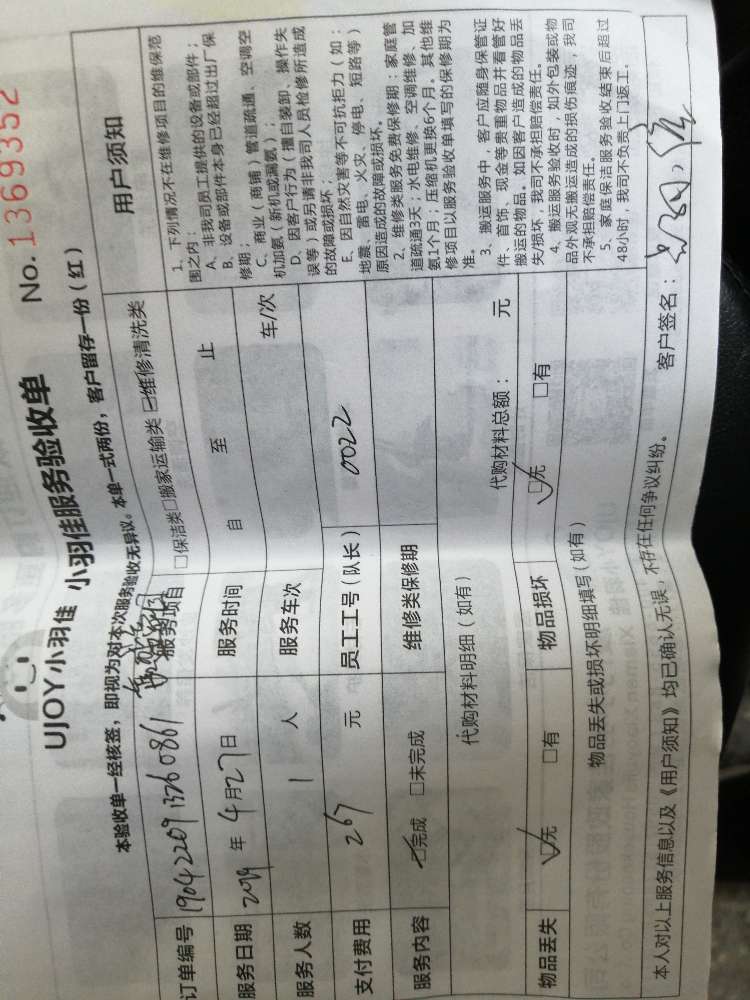 UJOY小羽佳 小羽佳服务验收单 No.1369352
本验收单一经核签，即视为对本次服务验收无异议。本单一式两份，客户留存一份（红）
订单编号 1904220913760861 服务项目 □保洁类□搬家运输类☑维修清洗类
服务日期 2019年4月27日 服务时间 自 至 止
服务人数 1 人 服务车次 车/次
支付费用 267 元 员工工号（队长） 0022
服务内容 ☑完成 □未完成 维修类保修期
代购材料明细（如有） 代购材料总额： 元
物品丢失 ☑无 □有 物品损坏 ☑无 □有
物品丢失或损坏明细填写（如有）
用户须知
1、下列情况不在维修项目的维保范
围之内：
A、非我司员工提供的设备或部件；
B、设备或部件本身已经超过出厂保
修期；
C、商业（商铺）管道疏通、空调空
机加氨（新机或漏氨）；
D、因客户行为（擅自装卸、操作失
误等）或另请非我司人员检修所造成
的故障或损坏；
E、因自然灾害等不可抗拒力（如：
地震、雷电、火灾、停电、短路等）
原因造成的故障或损坏。
2、维修类服务免费保修期：家庭管
道疏通3天；水电维修、空调维修、加
氨1个月；压缩机更换6个月。其他维
修项目以服务验收单填写的保修期为
准。
3、搬运服务中，客户应随身保管证
件、首饰、现金等贵重物品并看管好
搬运的物品。如因客户造成的物品丢
失/损坏，我司不承担赔偿责任。
4、搬运服务验收时，如外包装或物
品外观无搬运造成的损伤痕迹，我司
不承担赔偿责任。
5、家庭保洁服务验收结束后超过
48小时，我司不负责上门返工。
本人对以上服务信息以及《用户须知》均已确认无误，不存在任何争议纠纷。 客户签名：